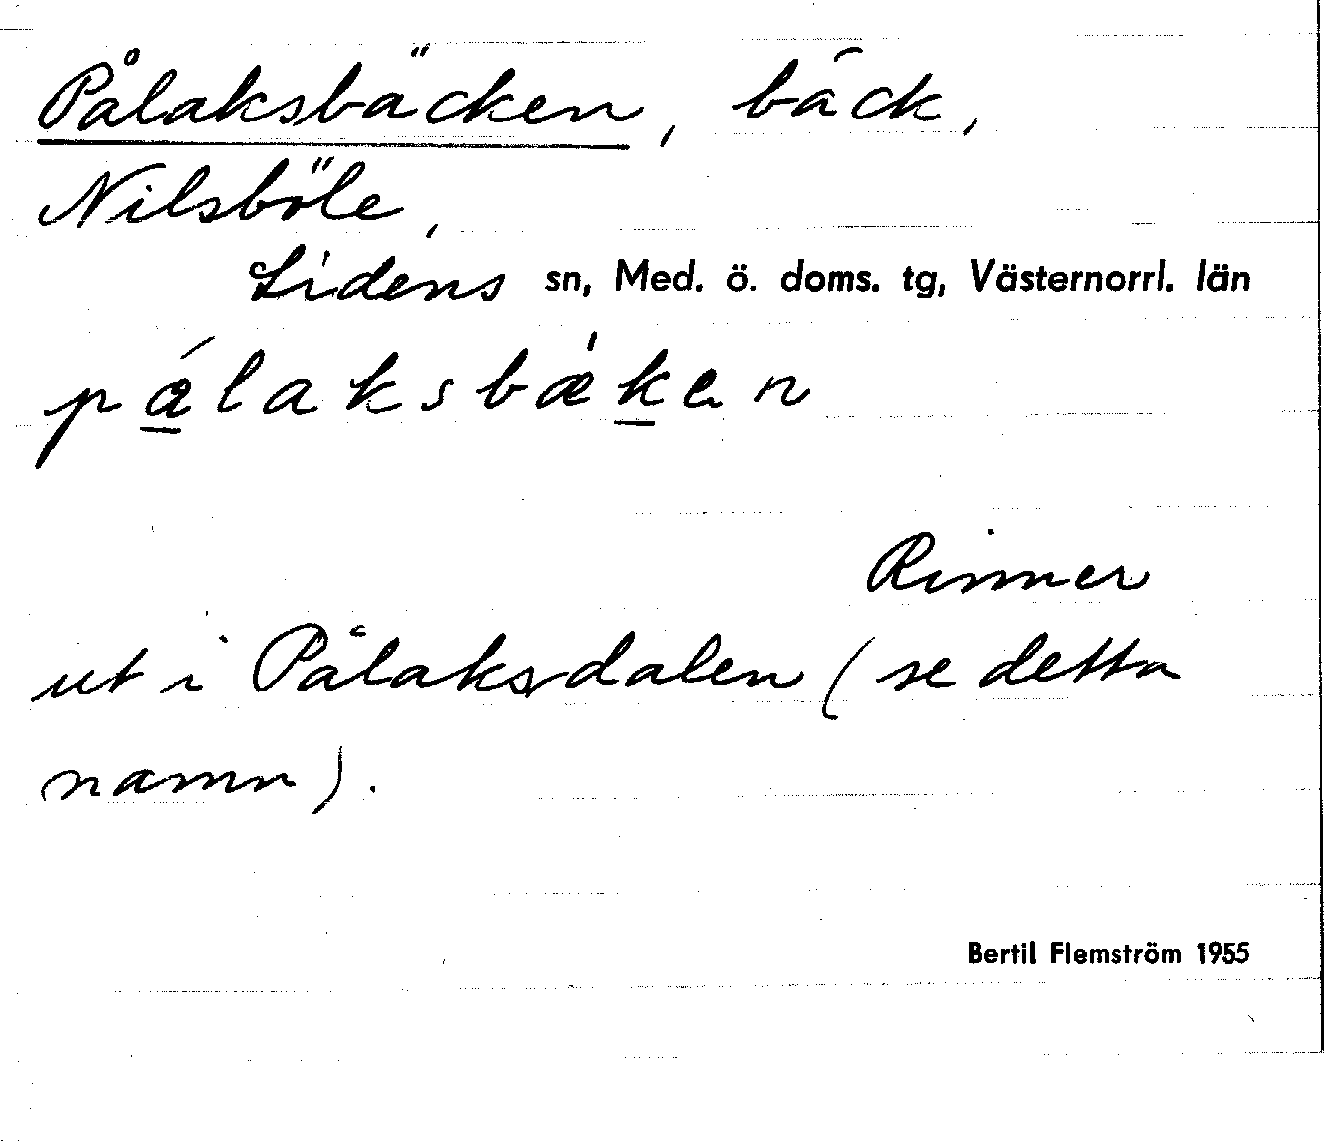 Pålaksbäcken, bäck,
Nilsböle,
Lidens sn, Med. ö. doms. tg, Västernorrl. län
pǻlaksbæ̀ken
Rinner
ut i Pålaksdalen (se detta
namn).
Bertil Flemström 1955